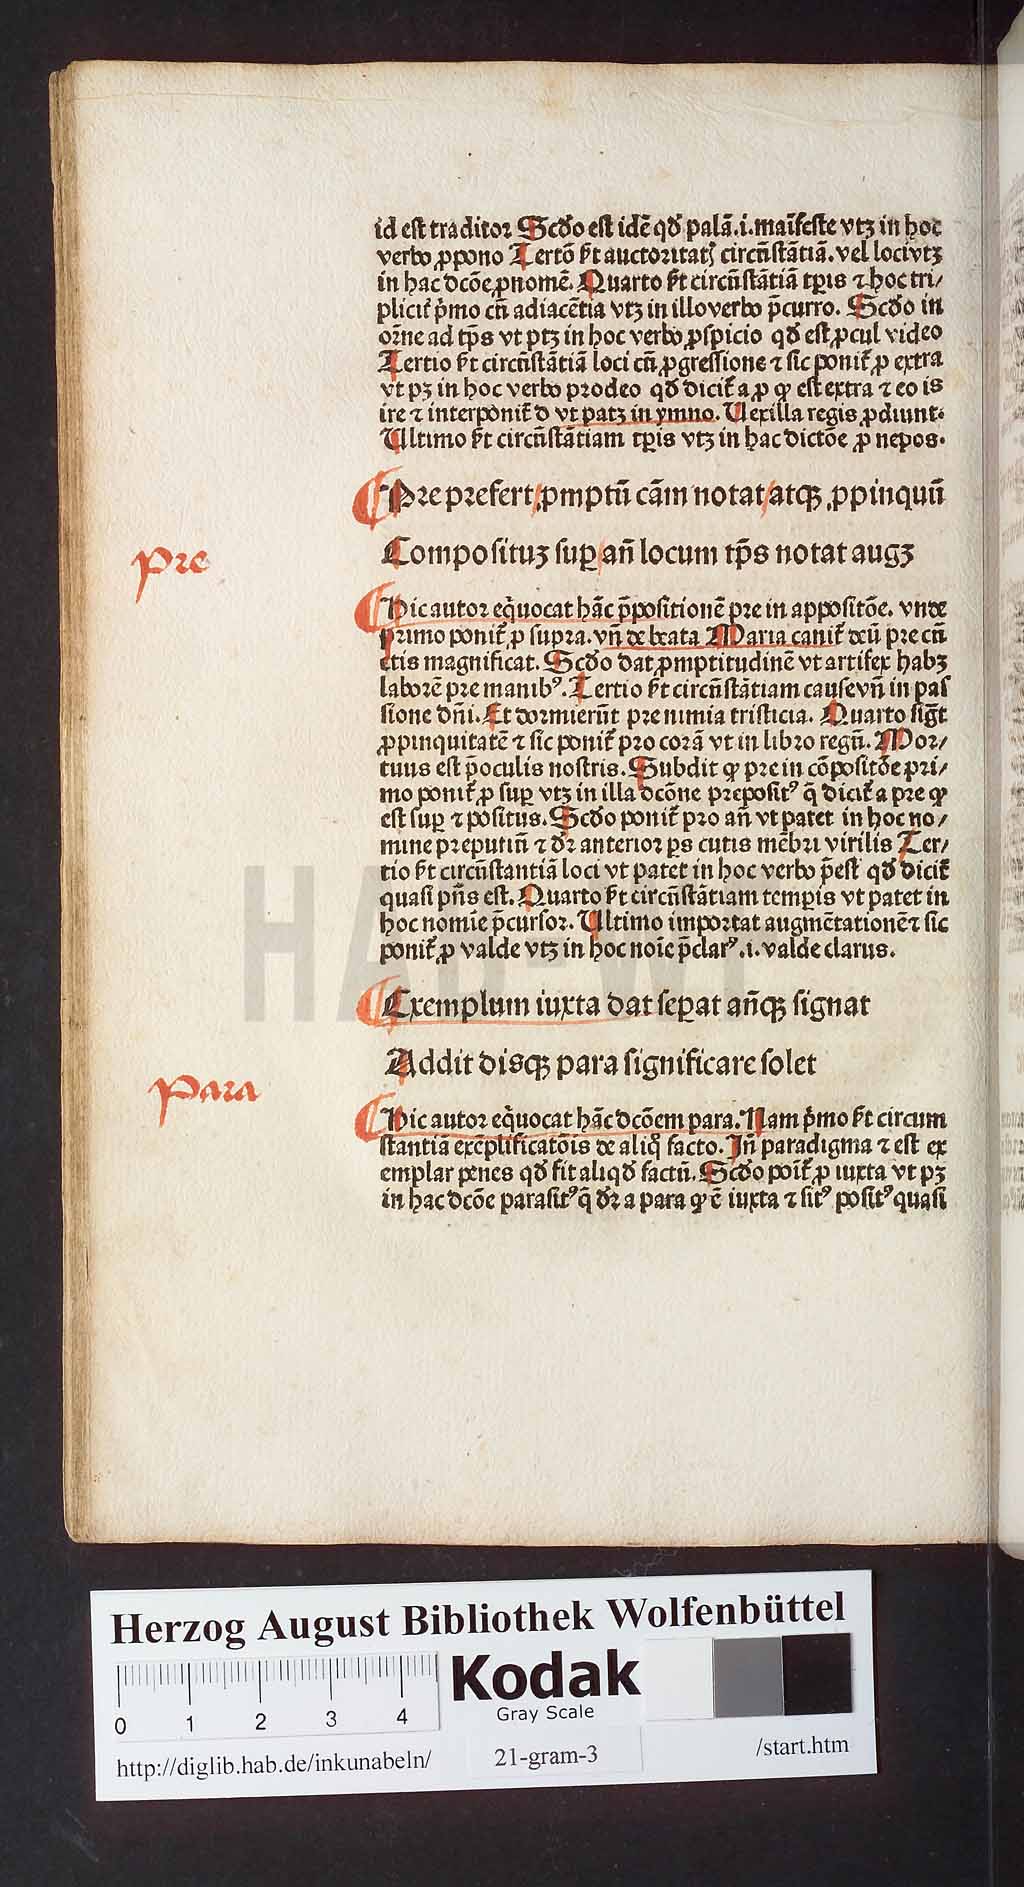 id est traditor Scd̄o est idē qd̄ palā.i.maīfeste vtꝫ in hoc
verbo ꝓpono Tertō ẜm auctoritatꝭ circūstātiā. vel loci vtꝫ
in hac dcōe ꝓnomē. Quarto ẜm circūstātiā tꝑis ⁊ hoc tri/
plicit̄ p̄mo cū adiacētia vtꝫ in illo verbo p̄curro. Scd̄o in
or̄ne ad tp̄s vt ptꝫ in hoc verbo ꝓspicio qd̄ est ꝓcul video
Tertio ẜm circūstātiā loci cū ꝓgressione ⁊ sic ponit̄ ꝓ extra
vt pꝫ in hoc verbo prodeo qd̄ dicit̄ a ꝓ ꝙ est extra ⁊ eo is
ire ⁊ interponit̄ d vt patꝫ in ymno. Uexilla regis ꝓdiunt.
Ultimo ẜm circūstātiam tꝑis vtꝫ in hac dictōe ꝓ nepos.
Pre prefert/ꝓmptū cām notat/atqꝫ ꝓpinquū
pre
Composituꝫ suꝑ/an̄ locum tp̄s notat augꝫ
Hic autor eq̄uocat hāc p̄positionē pre in appositōe. vnde
primo ponit̄ ꝓ supra. vn̄ de beata Maria canit̄ deū pre cū
ctis magnificat. Scd̄o dat ꝓmptitudinē vt artifex habꝫ
laborē pre manibꝰ. Tertio ẜm circūstātiam cause vn̄ in pas
sione dn̄i. Et dormierūt pre nimia tristicia. Quarto sigt̄
ꝓpinquitatē ⁊ sic ponit̄ pro corā vt in libro regū. Mor/
tuus est p̄oculis nostris. Subdit ꝙ pre in cōpositōe pri/
mo ponit̄ ꝓ suꝑ vtꝫ in illa dcōne prepositꝰ q̄ dicit̄ a pre ꝙ
est suꝑ ⁊ positus. Scd̄o ponit̄ pro an̄ vt patet in hoc no/
mine preputiū ⁊ dr̄ anterior ꝑs cutis mēbri virilis Ter/
tio ẜm circūstantiā loci vt patet in hoc verbo p̄est qd̄ dicit̄
quasi pn̄s est. Quarto ẜm circūstātiam temꝑis vt patet in
hoc nomīe p̄cursor. Ultimo importat augmētationē ⁊ sic
ponit̄ ꝓ valde vtꝫ in hoc noīe p̄clarꝰ.i.valde clarus.
Exemplum iuxta dat seꝑat an̄qꝫ signat
Addit disqꝫ para significare solet
Para
Hic autor eq̄uocat hāc dcōem para. Nam p̄mo ẜm circum
stantiā exēplificatōis de aliq̊ facto. Jn̄ paradigma ⁊ est ex
emplar penes qd̄ fit aliqd̄ factū. Scd̄o poīt̄ ꝓ iuxta vt pꝫ
in hac dcōe parasitꝰ q̄ dr̄ a para ꝙ ē iuxta ⁊ sitꝰ positꝰ quasi
HAB-WF
Herzog August Bibliothek Wolfenbüttel
0 1 2 3 4
Kodak
Gray Scale
http://diglib.hab.de/inkunabeln/
21-gram-3
/start.htm